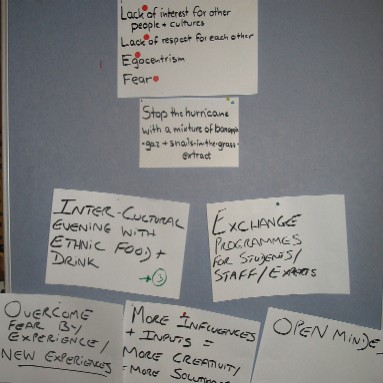 Lack of interest for other
people + cultures
Lack of respect for each other
Egocentrism
Fear
Stop the hurricane
with a mixture of
gaz + snails-in-the-grass-
extract
INTER-CULTURAL
EVENING WITH
ETHNIC FOOD +
DRINK
→ 3
EXCHANGE
PROGRAMMES
FOR STUDENTS/
STAFF/
OVERCOME
FEAR BY
EXPERIENCE/
NEW EXPERIENCES
MORE INFLUENCES
+ INPUTS =
MORE CREATIVITY/
MORE
OPEN